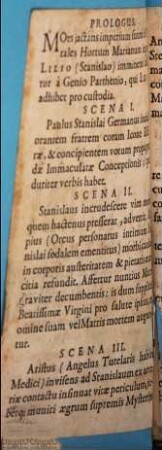 PROLOGUS.
MOrs jactans imperium suum
tales Hortum Marianum
LILIO (Stanislao) immi
tur à Genio Parthenio, qui
adhibet pro custodia.
SCENA I.
Paulus Stanislai Germanus
orantem fratrem coram Icone
ræ, & concipientem votum
dæ Immaculatæ Conceptionis
duriter verbis habet.
SCENA II.
Stanislaus increbescere vim
quem hactenus presserat, adver
pius (Orcus personatus intimum
nislai sodalem ementitus) morbi
in corporis austeritatem & pietati
citia refundit. Affertur nuntius
graviter decumbentis: is dum
Beatissimæ Virgini pro salute
omine suam vel Matris mortem
tur.
SCENA III.
Aristus (Angelus Tutelaris
Medici) invisens ad Stanislaum
riæ contactu insinuat vitæ periculum,
seqꝫ muniri ægrum supremis